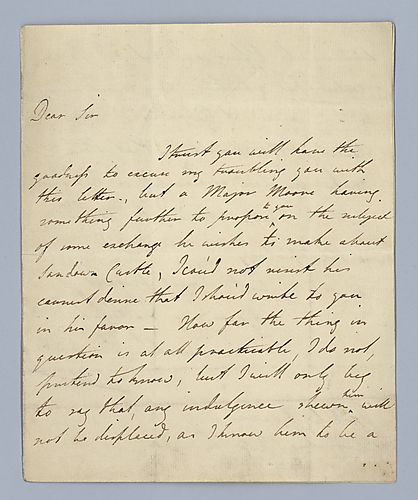 Dear Sir
I trust you will have the
goodness to excuse my troubling you with
this letter, but a Major Moore having
something further to propose to you on the subject
of some exchange he wishes to make about
Sandown Castle, I cou'd not resist his
earnest desire that I shou'd write to you
in his favor — How far the thing in
question is at all practicable, I do not,
pretend to know, but I will only beg
to say that, any indulgence shewn him will
not be displaced, as I know him to be a